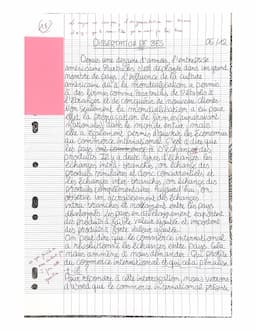 DISSERTATION DE SES
06/12
Depuis une dizaine d'années, l'entreprise
américaine Starbucks s'est déployée dans un grand
nombre de pays. L'influence de la culture
américaine dû à la mondialisation a permis
à des firmes comme Starbucks de s'établir à
l'étranger et de conquérir de nouveaux clients.
Non seulement la mondialisation a eu pour
effet la propagation de firmes
nationales dans le monde entier, mais
elle a également permis d'ouvrir les économies
au commerce international. C'est à dire que
les pays ont l'échange des
produits. Il y a deux types d'échanges: les
échanges intra-branches, on échange des
produits similaires et donc concurrentiels et
les échanges inter-branches, on échange des
produits complémentaires. Aujourd'hui, on
observe un accroissement des échanges
intra-branches et notamment entre les pays
développés. Les pays en développement exportent
des produits à faible valeur ajoutée et importent
des produits à forte valeur ajoutée.
On peut dire que le commerce international
a révolutionné les échanges entre pays. Cela
nous amène à nous demander: Qui profite
du commerce international et qui cela pénalise
t-il?
Pour répondre à cette interrogation, nous verrons
d'abord que le commerce international présente